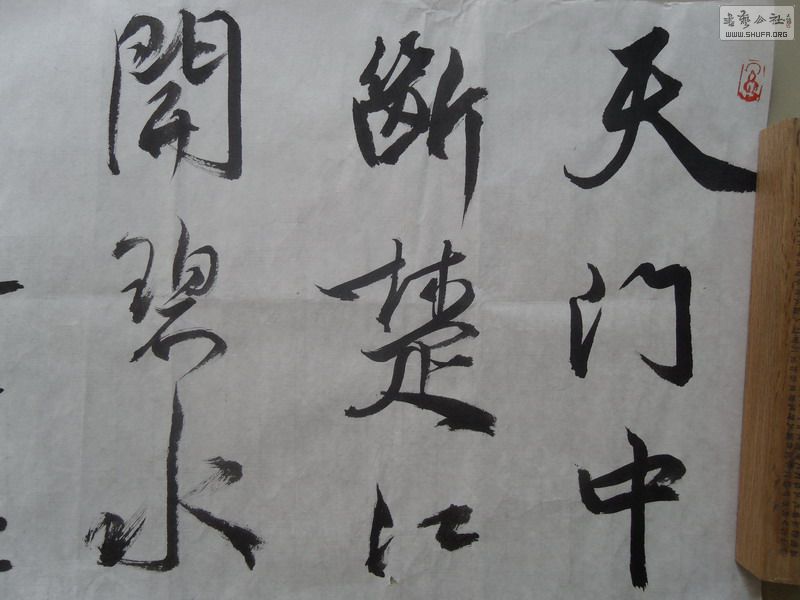 天门中
斷楚江
開碧水
書藝公社
WWW.SHUFA.ORG